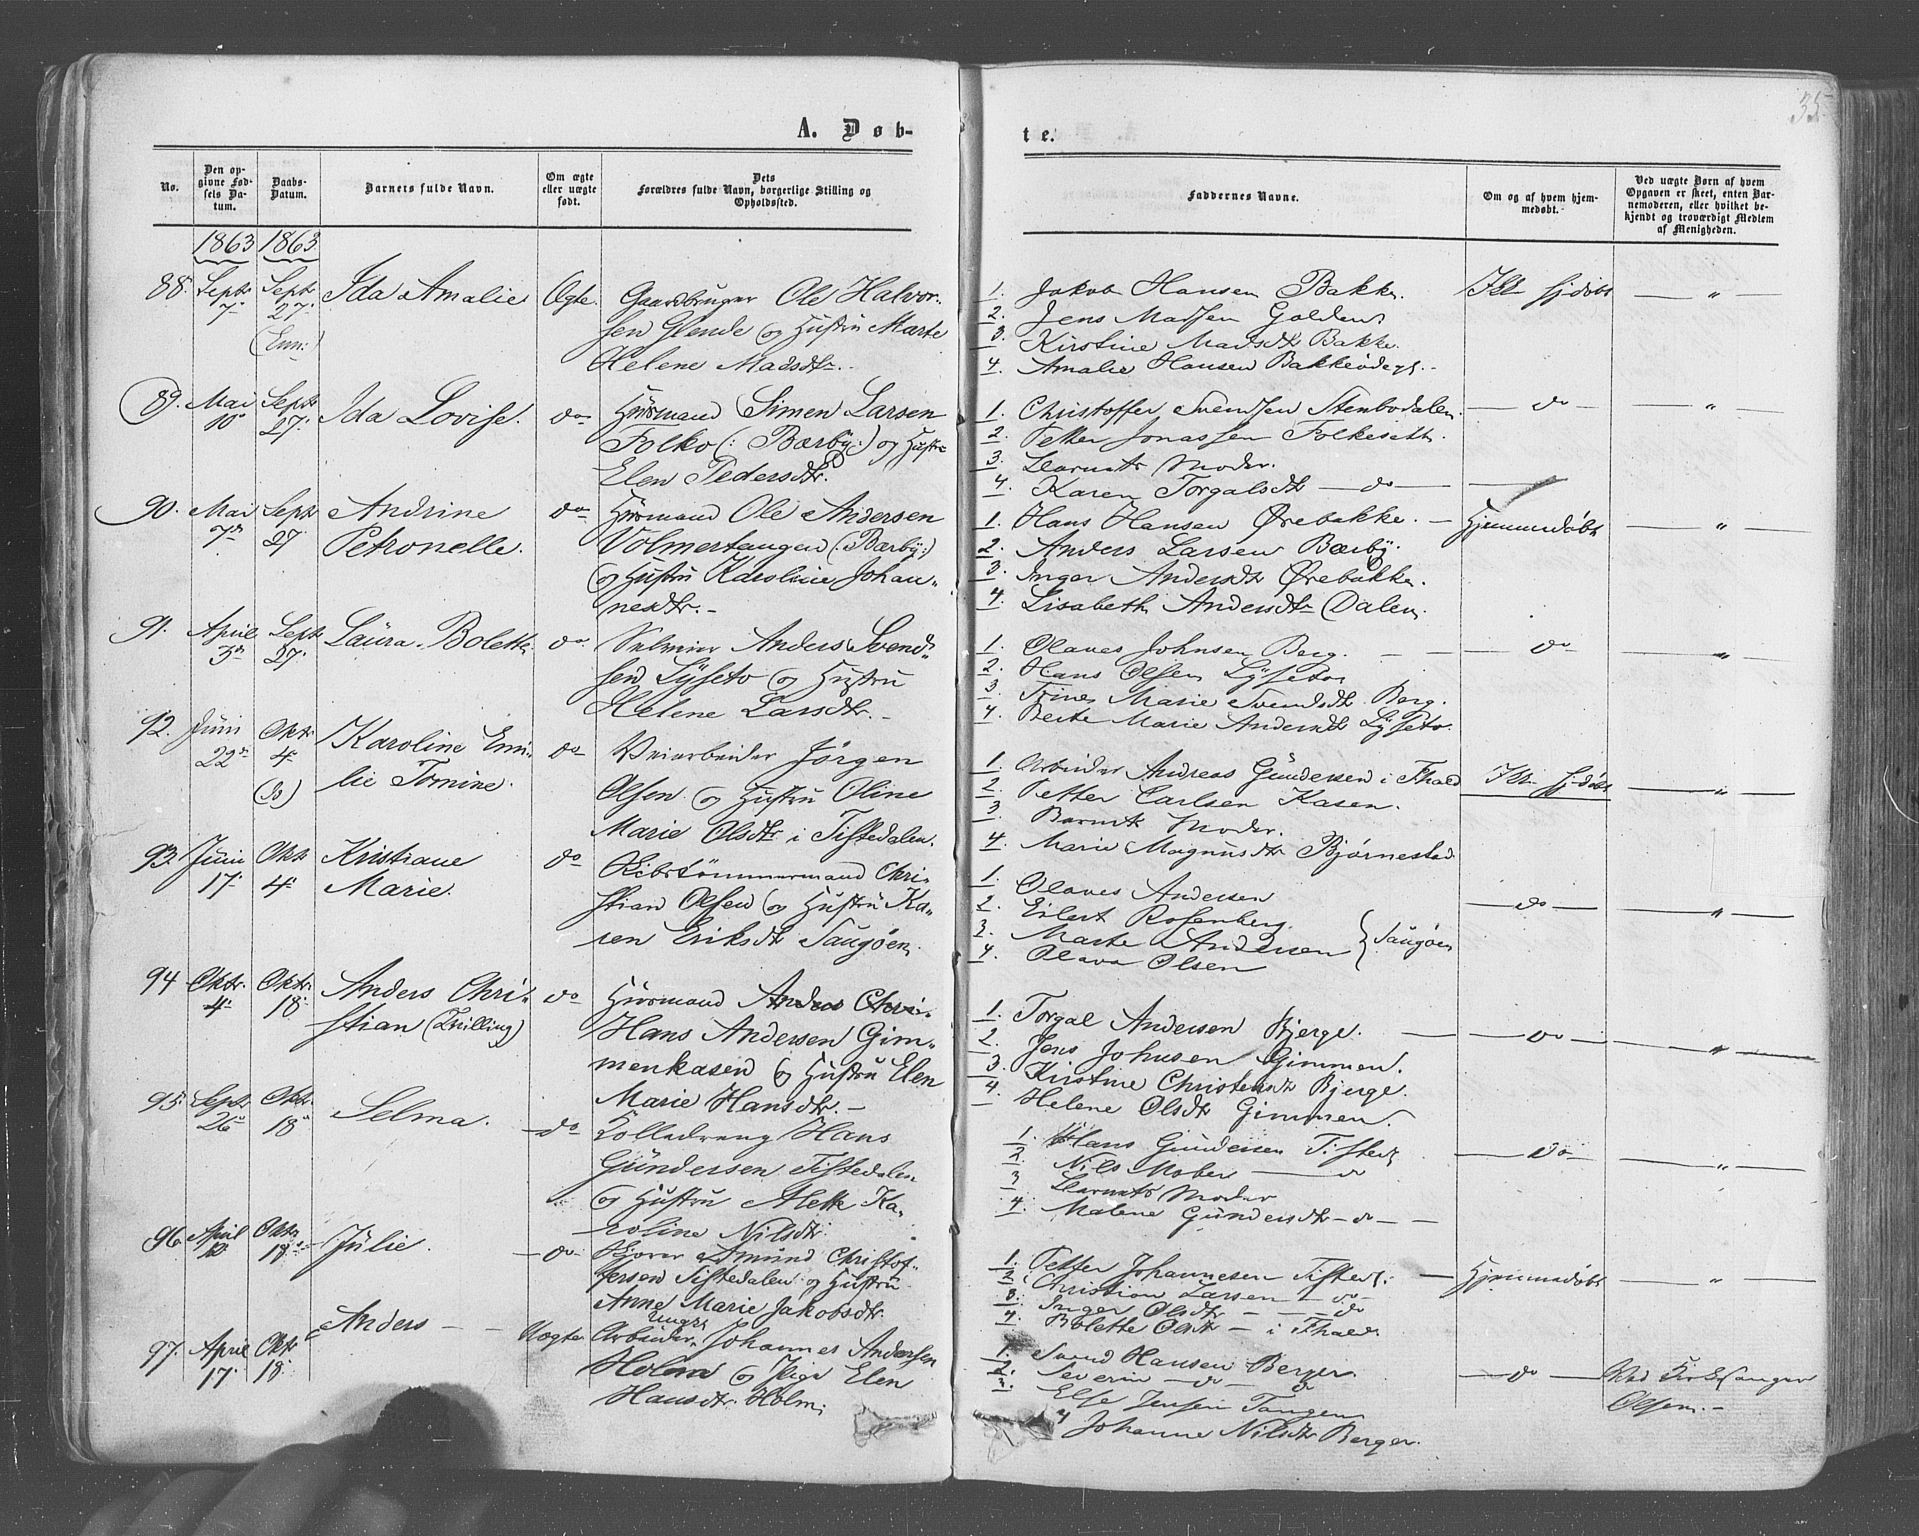 35
A. Døb-
te.
No.
Den op-
givne Fød-
sels Da-
tum.
Daabs-
Datum.
Barnets fulde Navn.
Om ægte
eller uægte
født.
Dets
Forældres fulde Navn, borgerlige Stilling og
Opholdssted.
Faddernes Navne.
Om og af hvem hjem-
medøbt.
Ved uægte Børn af hvem
Opgaven er skeet, enten Bar-
nemoderen, eller hvilket be-
kjendt og troværdigt Medlem
af Menigheden.
1863 1863
88. Septr 7. Septr 27. Ida Amalie Ægte.
Gaardbruger Ole Halvor-
sen Glende og Hustru Marte
Helene Madsdtr.
1. Jakob Hansen Bakke.
2. Jens Madsen Golden
3. Kirstine Madsdtr Bakke.
4. Amalie Hansen Bakkeødeg.
Ikke hjdøbt "
89. Mai 10. Septr 27. Ida Lovise. do
Husmand Simen Larsen
Folko (: Bærby:) og Hustru
Elen Pedersdtr.
1. Christoffer Svendsen Stenbodalen.
2. Petter Jonassen Folkesett.
3. Barnets Moder.
4. Karen Torgalsdtr do
do "
90. Mai 7de Septr 27 Andrine
Petronelle. do
Husmand Ole Andersen
Volmertangen (: Bærby:)
og Hustru Karoline Johan-
nesdtr.
1. Hans Hansen Ørebakke.
2. Anders Larsen Bærby.
3. Inger Andersdtr Ørebakke.
4. Lisabeth Andersdtr Dalen.
Hjemmedøbt "
91. April 3die Septr 27. Laura Bolette do
Selveier Anders Svend-
sen Lyseto og Hustru
Helene Larsdtr.
1. Olaves Johnsen Berg.
2. Hans Olsen Lyseto
3. Trine Marie Svendsdtr Berg.
4. Berte Marie Andersdtr Lyseto.
do "
92. Juni 22de Oktr 4de Karoline Emi-
lie Tomine. do
Veiarbeider Jørgen
Olsen og Hustru Oline
Marie Olsdtr i Tistedalen.
1. Arbeider Andreas Gundersen i Fhald
2. Petter Carlsen Kasen.
3. Barnets Moder.
4. Marie Magnusdtr Bjørnestad
Ikke hjdøbt "
93. Juni 17. Oktr 4de Kristiane
Marie. do
Skibstømmermand Chri-
stian Olsen og Hustru Ka-
ren Eriksdtr Saugøen.
1. Olaves Andersen
2. Eilert Rosenberg
3. Marte Andersen
4. Olava Olsen
Saugøen
do "
94 Oktr. 4de Oktr. 18. Anders Chri-
stian (Tvilling) do
Husmand Anders Chri-
Hans Andersen Gim-
menkasen og Hustru Elen
Marie Hansdtr.
1. Torgal Andersen Bjerge.
2. Jens Johnsen Gimmen.
3. Kirstine Christensdtr Bjerge.
4. Helene Olsdtr Gimmen.
do "
95. Septr 26 Oktr. 18 Selma. do
Tolledreng Hans
Gundersen Tistedalen
og Hustru Alette Ka-
roline Nilsdtr.
1. Hans Gundersen Tisted
2. Nils Mober do
3 Barnets Moder
4. Malene Gundersdtr do
do "
96. April Oktr. 18. Julie. do
Amund Christof-
fersen Tistedalen og Hustru
Anne Marie Jakobsdtr.
1. Petter Johannesen Tisted.
2. Christian Larsen do
3. Inger Olsdtr do
4. Bolette Olsdtr i Fhald.
Hjemmedøbt "
97. April 17. Oktr 18. Anders Uægte
Ungk.
Arbeider Johannes Andersen
Holm og Pige Elen
Hansdtr. Holm.
1. Svend Hansen Berger
2. Severin do do
3. Else Jensen Tangen
4 Johanne Nilsdtr Berger.
do Ved Kirkesanger
Olsen.